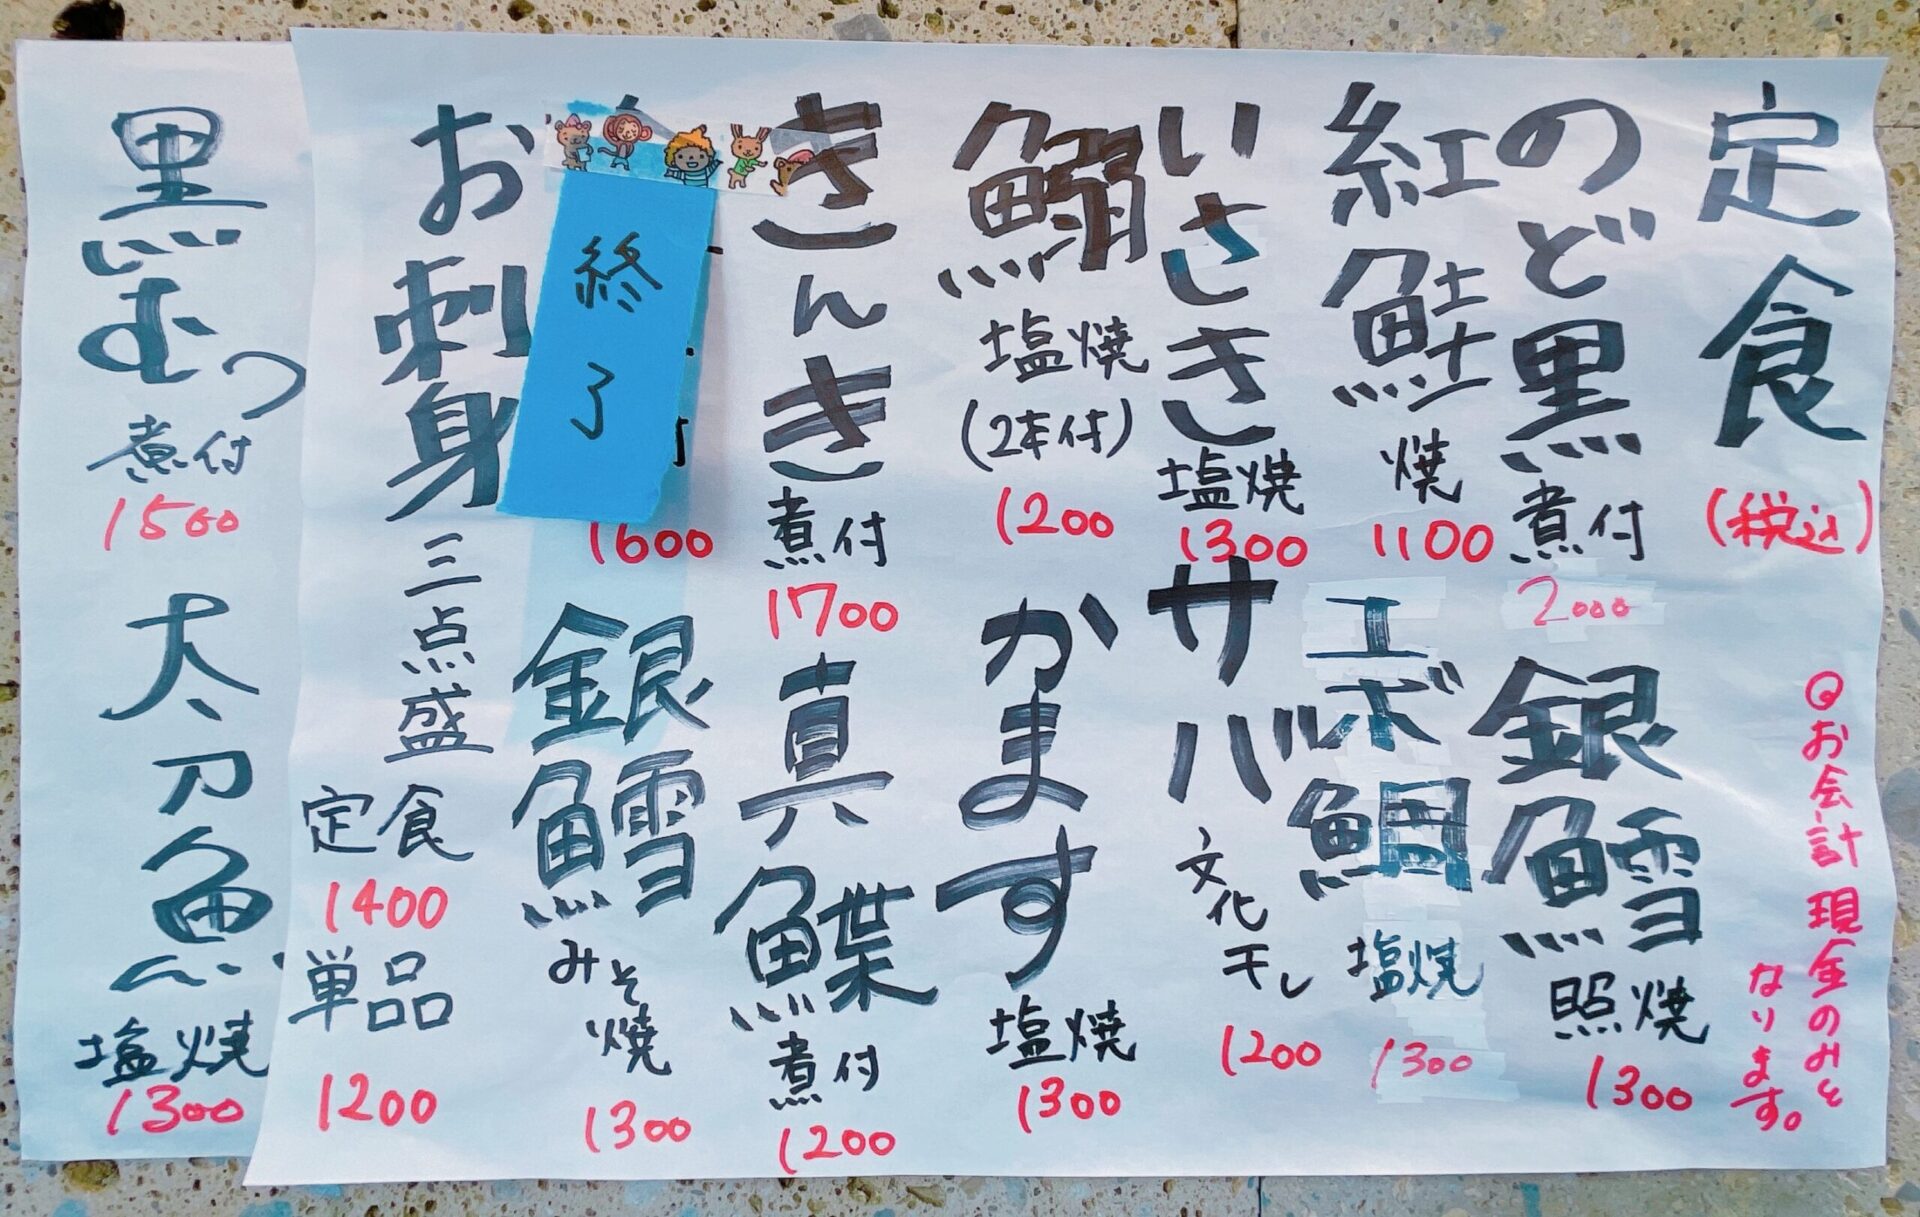 定食
(税込)
◎お会計現金のみと
なります。
のど黒
煮付
2000
銀鱈
照焼
1300
紅鮭
焼
1100
エボ鯛
塩焼
1300
いさき
塩焼
1300
サバ
文化干し
1200
鰯
塩焼
(2本付)
1200
かます
塩焼
1300
きんき
煮付
1700
真鰈
煮付
1200
終了
1600
銀鱈
みそ焼
1300
お刺身
三点盛
定食
1400
単品
1200
黒むつ
煮付
1500
太刀魚
塩焼
1300